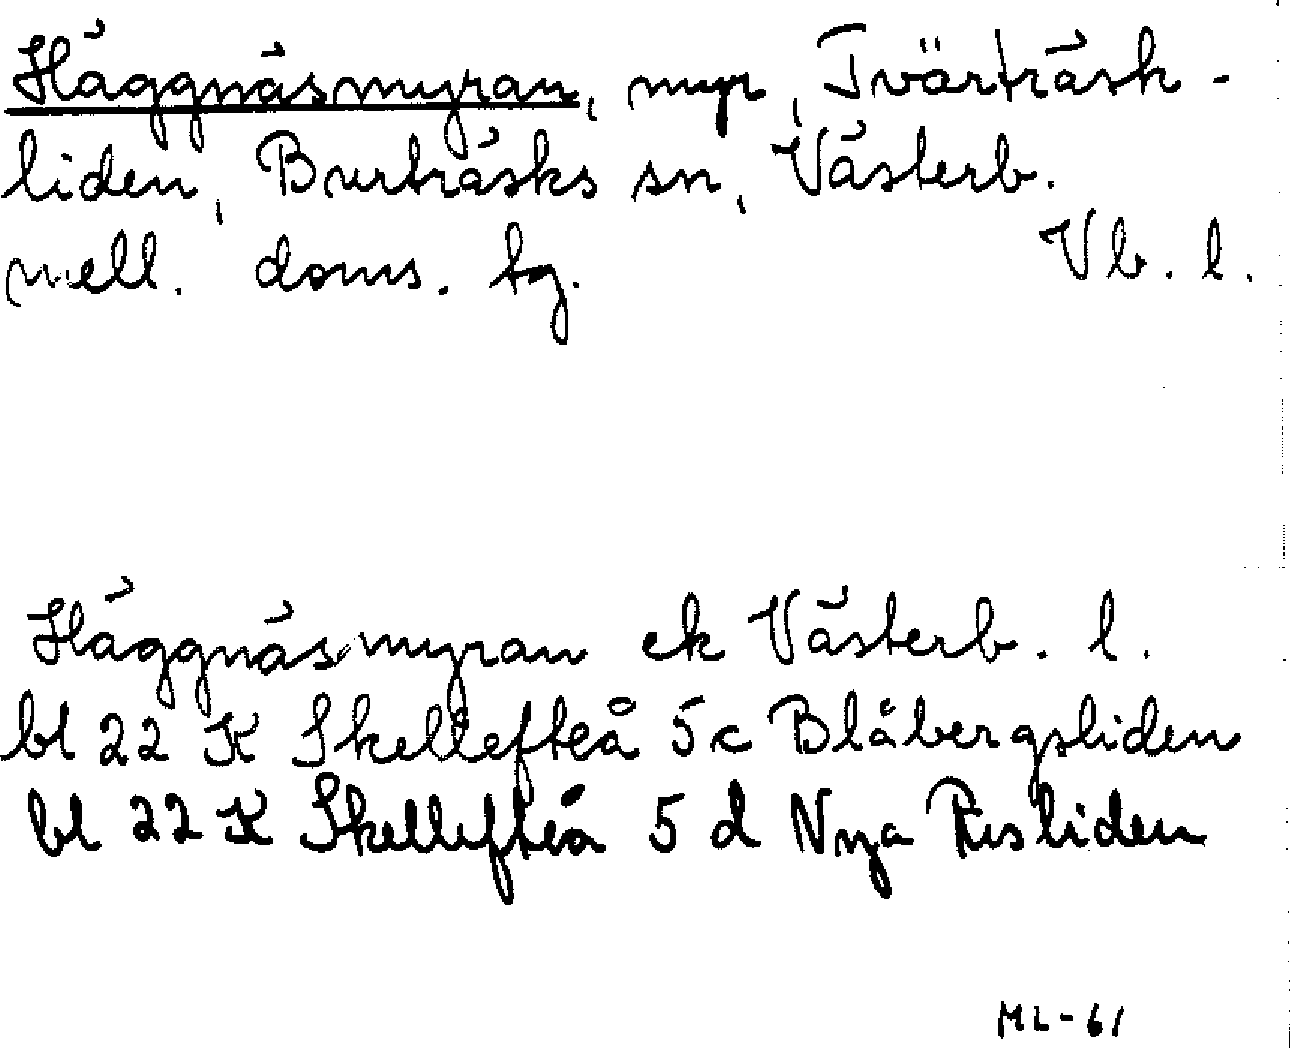 Häggnäsmyran, myr, Tvärträsk-
liden, Burträsks sn, Västerb.
mell. doms. tg.
Vb. l.
Häggnäsmyran ek Västerb. l.
bl 22 K Skellefteå 5c Blåbergsliden
bl 22 K Skellefteå 5 d Nya Risliden
ML-61